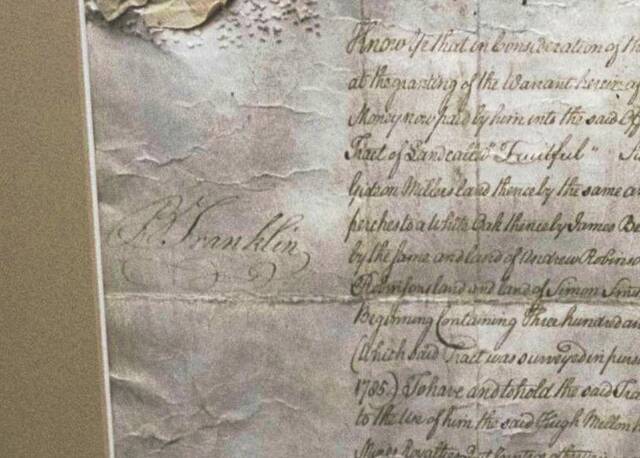 Know Ye that in Consideration of th
at the granting of the Warrant herein af
Money now paid by him into the said Off
Tract of Land called "Fruitful"
Gideon Millers land thence by the same an
perches to a White Oak thence by James Be
B Franklin
by the same and land of Andrew Robinso
Robinsons land and land of Simon
Beginning Containing Three hundred an
(Which said Tract was surveyed in purs
1785.) To have and to hold the said Tra
to the Use of him the said Hugh Mellon h